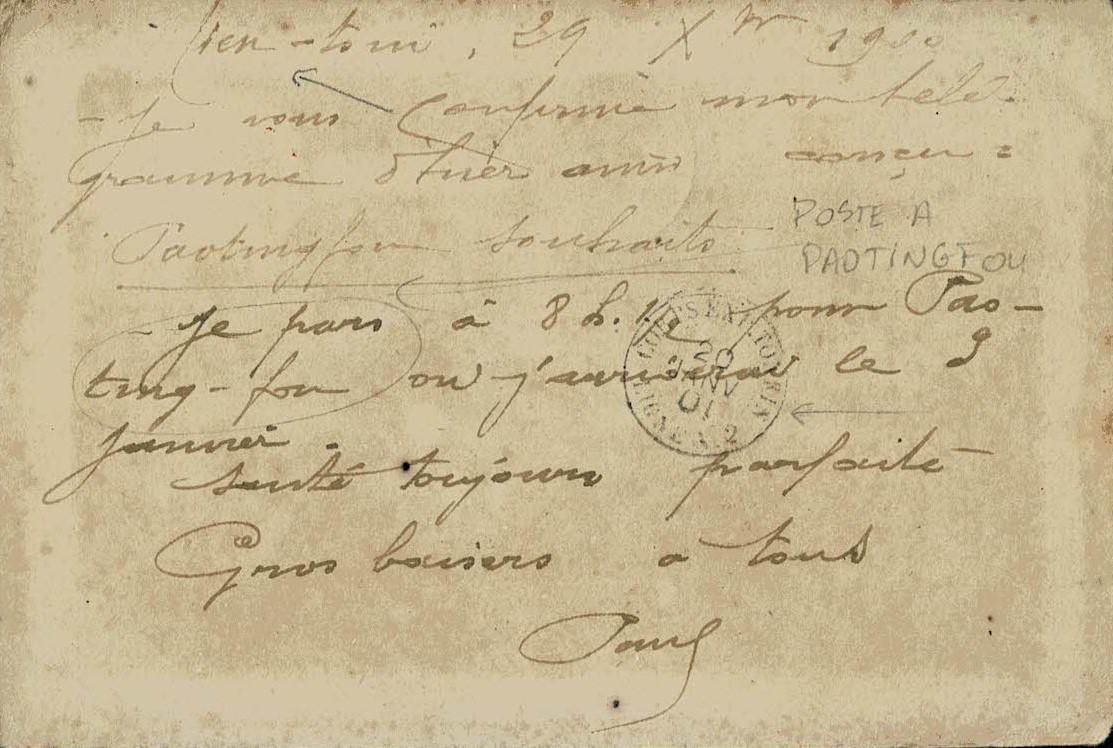 Tien-tsin, 29 Xbre 1900
- Je vous confirme mon télé-
gramme d'hier ainsi conçu :
Paotingfou souhaits
POSTE A
PAOTINGFOU
- Je pars à 8 h. 1/2 pour Pao-
ting-fou où j'arriverai le 3
janvier.
Santé toujours parfaite
Gros baisers a tous
Paul
20
JANV
01